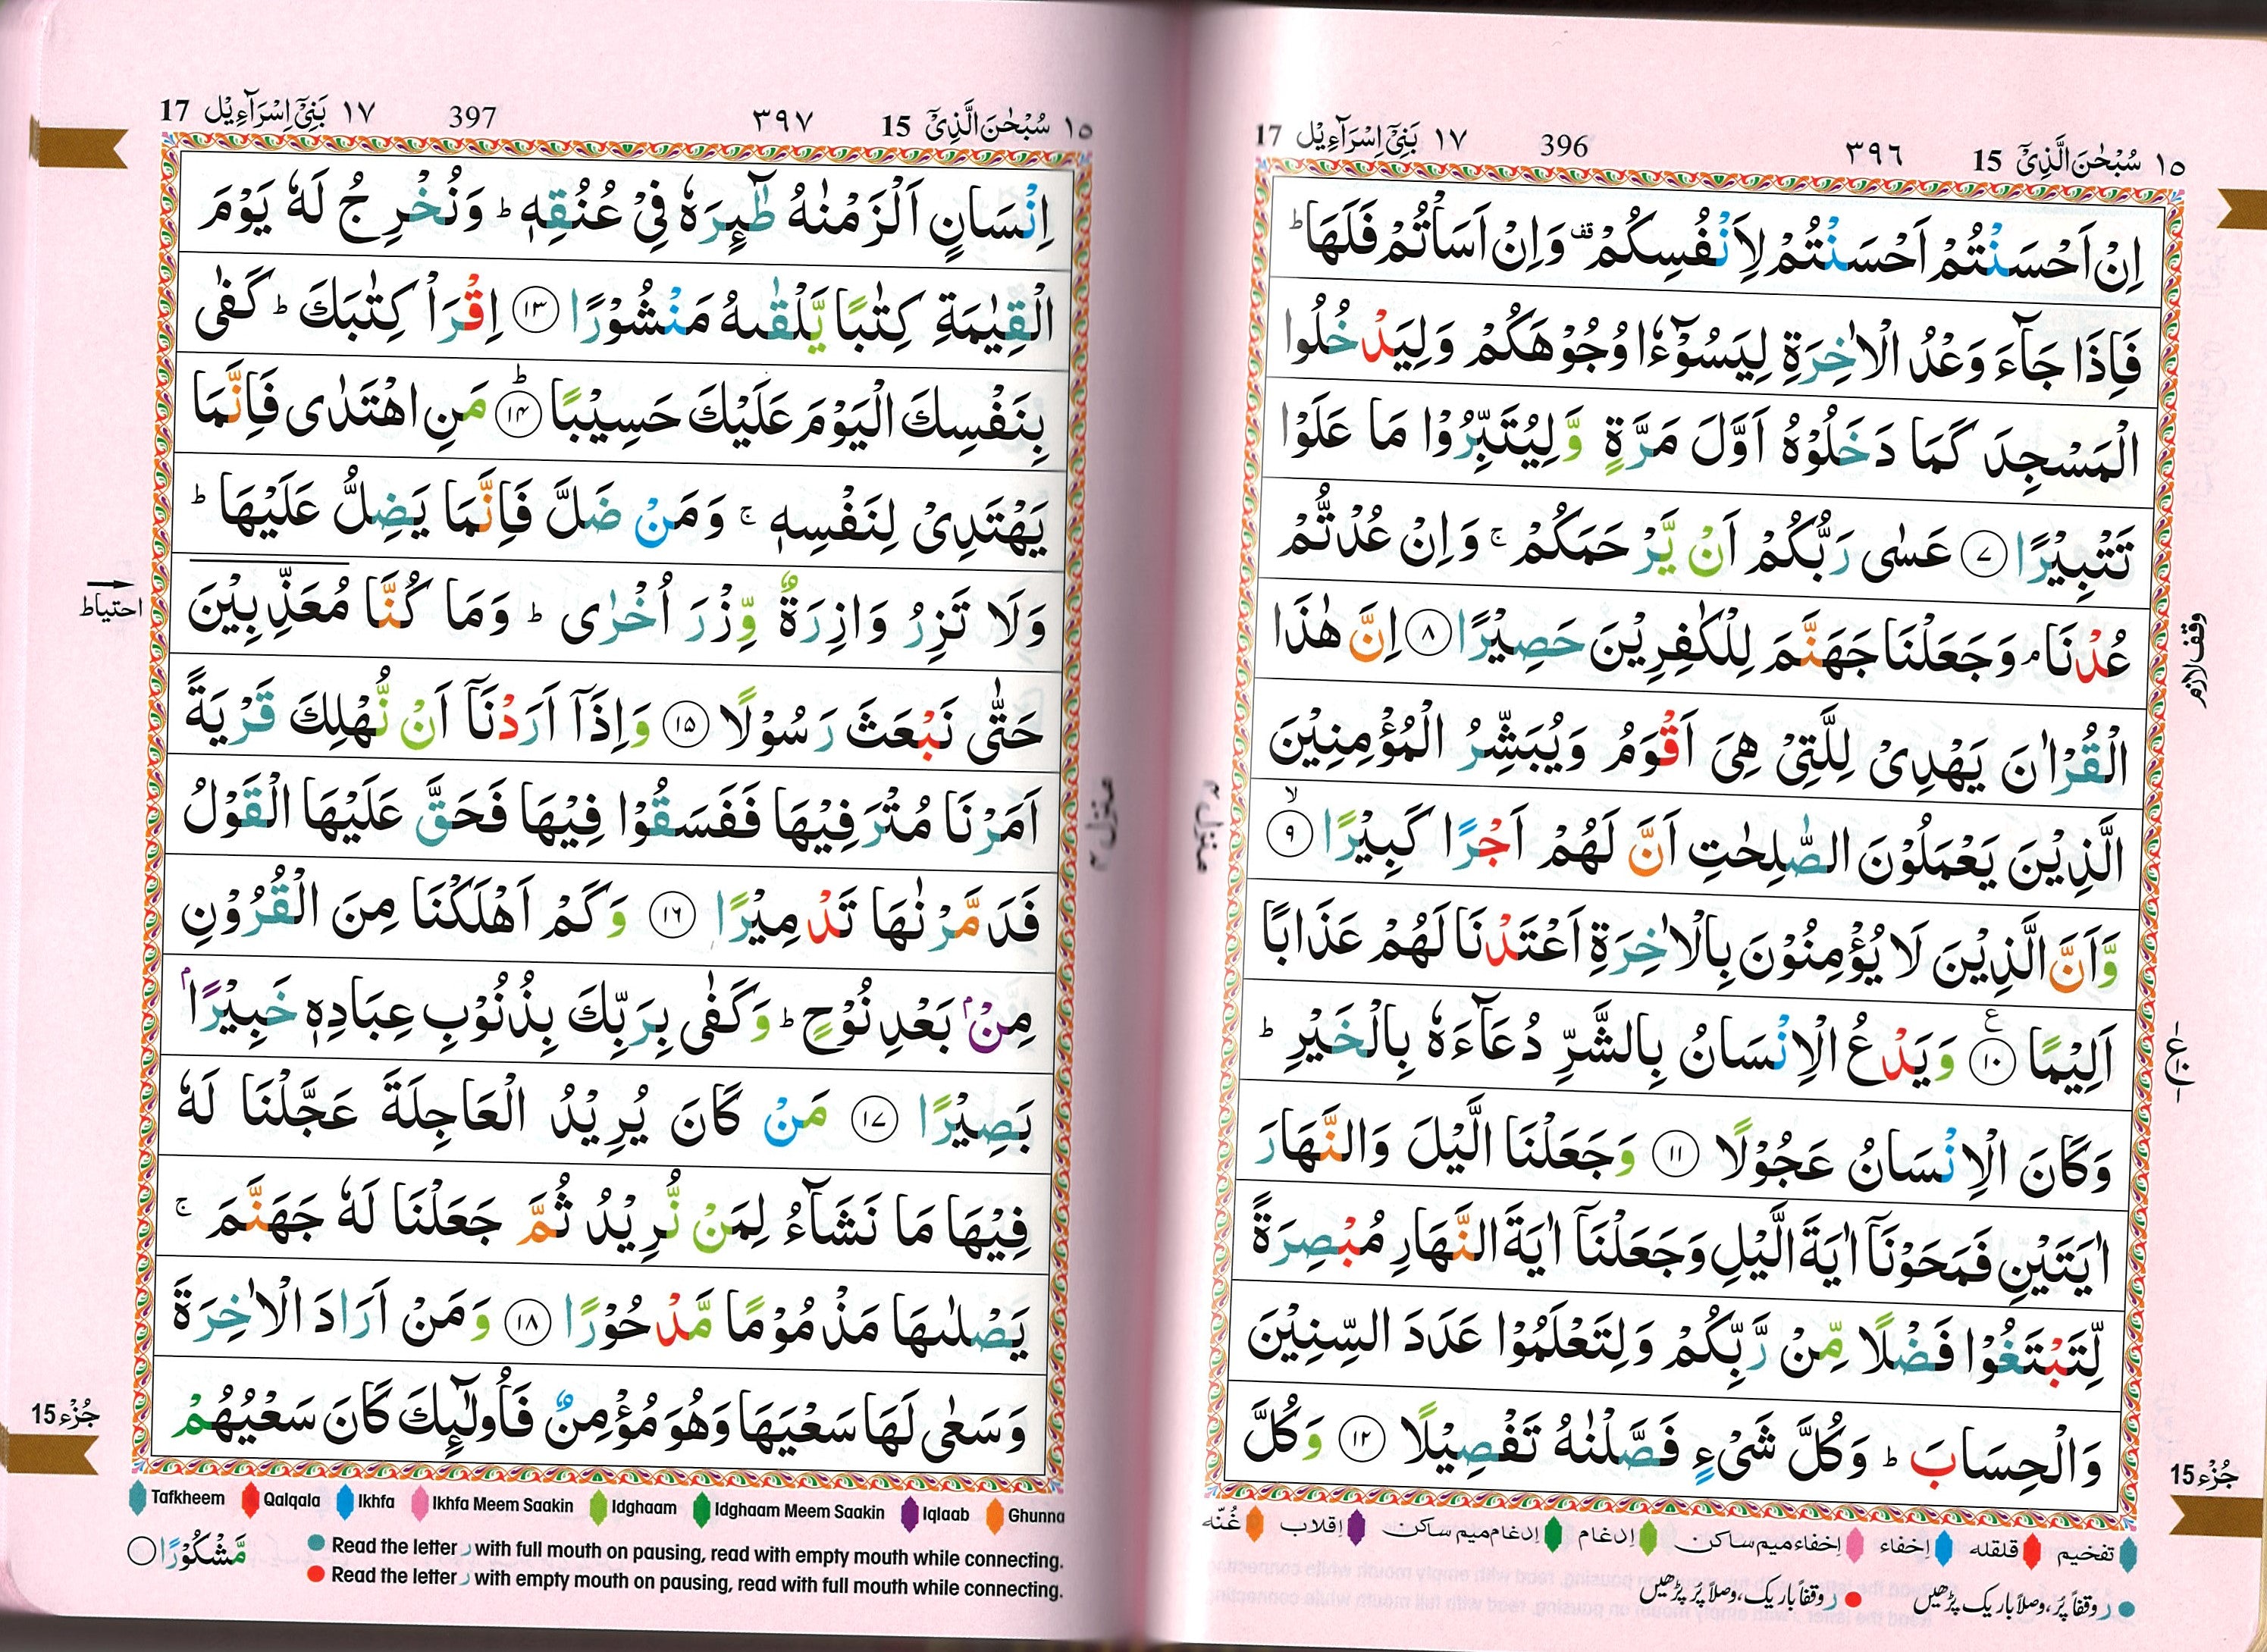 ١٥ سُبْحٰنَ الَّذِیْۤ 15 ٣٩٦ 396 ١٧ بَنِیْۤ اِسْرَآءِیْل 17
اِنْ اَحْسَنْتُمْ اَحْسَنْتُمْ لِاَنْفُسِكُمْ قف وَاِنْ اَسَاْتُمْ فَلَهَا ؕ
فَاِذَا جَآءَ وَعْدُ الْاٰخِرَةِ لِیَسُوْٓءٗا وُجُوْهَكُمْ وَلِیَدْخُلُوا
الْمَسْجِدَ كَمَا دَخَلُوْهُ اَوَّلَ مَرَّةٍ وَّلِیُتَبِّرُوْا مَا عَلَوْا
تَتْبِیْرًا ٧ عَسٰى رَبُّكُمْ اَنْ یَّرْحَمَكُمْ ۚ وَاِنْ عُدْتُّمْ
عُدْنَا ۘ وَجَعَلْنَا جَهَنَّمَ لِلْكٰفِرِیْنَ حَصِیْرًا ٨ اِنَّ هٰذَا
الْقُرْاٰنَ یَهْدِیْ لِلَّتِیْ هِیَ اَقْوَمُ وَیُبَشِّرُ الْمُؤْمِنِیْنَ
الَّذِیْنَ یَعْمَلُوْنَ الصّٰلِحٰتِ اَنَّ لَهُمْ اَجْرًا كَبِیْرًا ۙ ٩
وَّاَنَّ الَّذِیْنَ لَا یُؤْمِنُوْنَ بِالْاٰخِرَةِ اَعْتَدْنَا لَهُمْ عَذَابًا
اَلِیْمًا ١٠ ع وَیَدْعُ الْاِنْسَانُ بِالشَّرِّ دُعَآءَهٗ بِالْخَیْرِ ؕ
وَكَانَ الْاِنْسَانُ عَجُوْلًا ١١ وَجَعَلْنَا الَّیْلَ وَالنَّهَارَ
اٰیَتَیْنِ فَمَحَوْنَاۤ اٰیَةَ الَّیْلِ وَجَعَلْنَاۤ اٰیَةَ النَّهَارِ مُبْصِرَةً
لِّتَبْتَغُوْا فَضْلًا مِّنْ رَّبِّكُمْ وَلِتَعْلَمُوْا عَدَدَ السِّنِیْنَ
وَالْحِسَابَ ؕ وَكُلَّ شَیْءٍ فَصَّلْنٰهُ تَفْصِیْلًا ١٢ وَكُلَّ
وقف لازم
جُزْء 15
تفخیم قلقلہ إخفاء إخفاء میم ساکن إدغام إدغام میم ساکن إقلاب غُنّہ
ر وقفاً پُر، وصلاً باریک پڑھیں ر وقفاً باریک، وصلاً پُر پڑھیں
١٥ سُبْحٰنَ الَّذِیْۤ 15 ٣٩٧ 397 ١٧ بَنِیْۤ اِسْرَآءِیْل 17
اِنْسَانٍ اَلْزَمْنٰهُ طٰٓئِرَهٗ فِیْ عُنُقِهٖ ؕ وَنُخْرِجُ لَهٗ یَوْمَ
الْقِیٰمَةِ كِتٰبًا یَّلْقٰىهُ مَنْشُوْرًا ١٣ اِقْرَاْ كِتٰبَكَ ؕ كَفٰى
بِنَفْسِكَ الْیَوْمَ عَلَیْكَ حَسِیْبًا ؕ ١٤ مَنِ اهْتَدٰى فَاِنَّمَا
یَهْتَدِیْ لِنَفْسِهٖ ۚ وَمَنْ ضَلَّ فَاِنَّمَا یَضِلُّ عَلَیْهَا ؕ
وَلَا تَزِرُ وَازِرَةٌ وِّزْرَ اُخْرٰى ؕ وَمَا كُنَّا مُعَذِّبِیْنَ
حَتّٰى نَبْعَثَ رَسُوْلًا ١٥ وَاِذَاۤ اَرَدْنَاۤ اَنْ نُّهْلِكَ قَرْیَةً
اَمَرْنَا مُتْرَفِیْهَا فَفَسَقُوْا فِیْهَا فَحَقَّ عَلَیْهَا الْقَوْلُ
فَدَمَّرْنٰهَا تَدْمِیْرًا ١٦ وَكَمْ اَهْلَكْنَا مِنَ الْقُرُوْنِ
مِنْۢ بَعْدِ نُوْحٍ ؕ وَكَفٰى بِرَبِّكَ بِذُنُوْبِ عِبَادِهٖ خَبِیْرًۢا
بَصِیْرًا ١٧ مَنْ كَانَ یُرِیْدُ الْعَاجِلَةَ عَجَّلْنَا لَهٗ
فِیْهَا مَا نَشَآءُ لِمَنْ نُّرِیْدُ ثُمَّ جَعَلْنَا لَهٗ جَهَنَّمَ ۚ
یَصْلٰىهَا مَذْمُوْمًا مَّدْحُوْرًا ١٨ وَمَنْ اَرَادَ الْاٰخِرَةَ
وَسَعٰى لَهَا سَعْیَهَا وَهُوَ مُؤْمِنٌ فَاُولٰٓئِكَ كَانَ سَعْیُهُمْ
احتیاط
جُزْء 15
Tafkheem Qalqala Ikhfa Ikhfa Meem Saakin Idghaam Idghaam Meem Saakin Iqlaab Ghunna
Read the letter ر with full mouth on pausing, read with empty mouth while connecting.
Read the letter ر with empty mouth on pausing, read with full mouth while connecting.
مَّشْكُوْرًا